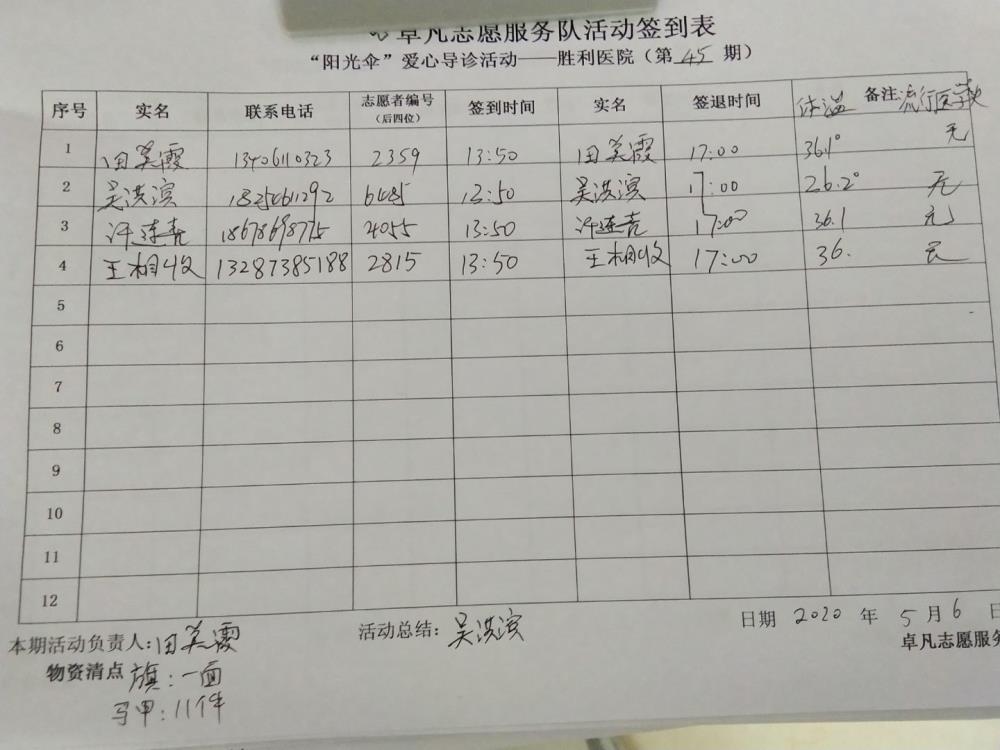 卓凡志愿服务队活动签到表
“阳光伞”爱心导诊活动——胜利医院（第 45 期）
序号 实名 联系电话 志愿者编号（后四位） 签到时间 实名 签退时间 体温 备注 流行医学史
1 田美霞 13406110323 2359 13:50 田美霞 17:00 36.1° 无
2 吴洪滨 18254611292 6085 13:50 吴洪滨 17:00 26.2° 无
3 许连青 18678698775 4055 13:50 许连青 17:00 36.1 无
4 王相收 13287385188 2815 13:50 王相收 17:00 36. 无
5
6
7
8
9
10
11
12
本期活动负责人:田美霞 活动总结: 吴洪滨 日期 2020 年 5 月 6 日
卓凡志愿服务
物资清点 旗：一面
马甲：11件